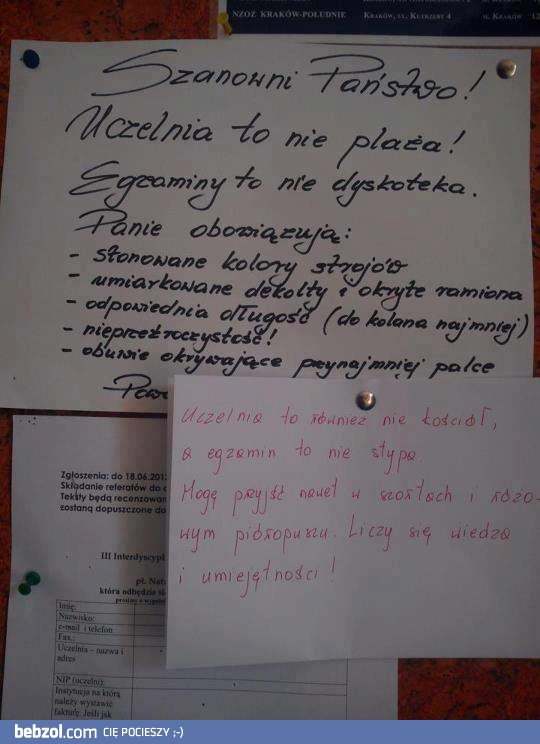 NZOZ KRAKÓW-POŁUDNIE KRAKÓW, UL. KUTRZEBY 4
Szanowni Państwo!
Uczelnia to nie plaża!
Egzaminy to nie dyskoteka.
Panie obowiązują:
- stonowane kolory strojów
- umiarkowane dekolty i okryte ramiona
- odpowiednia długość (do kolana najmniej)
- nieprzeźroczystość!
- obuwie okrywające przynajmniej palce
Uczelnia to również nie kościół,
a egzamin to nie stypa
Mogę przyjść nawet w szortach i różo-
wym pióropuszu. Liczy się wiedza
i umiejętności!
Zgłoszenia: do 18.06.201
Składanie referatów do
Teksty będą recenzowan
zostaną dopuszczone do
III Interdyscypl
pt. Natu
która odbędzie si
Imię:
Nazwisko:
e-mail i telefon
Fax.:
Uczelnia – nazwa i
adres
NIP (uczelni):
Instytucja na którą
należy wystawić
fakturę. Jeśli jak
bebzol.com CIĘ POCIESZY ;-)